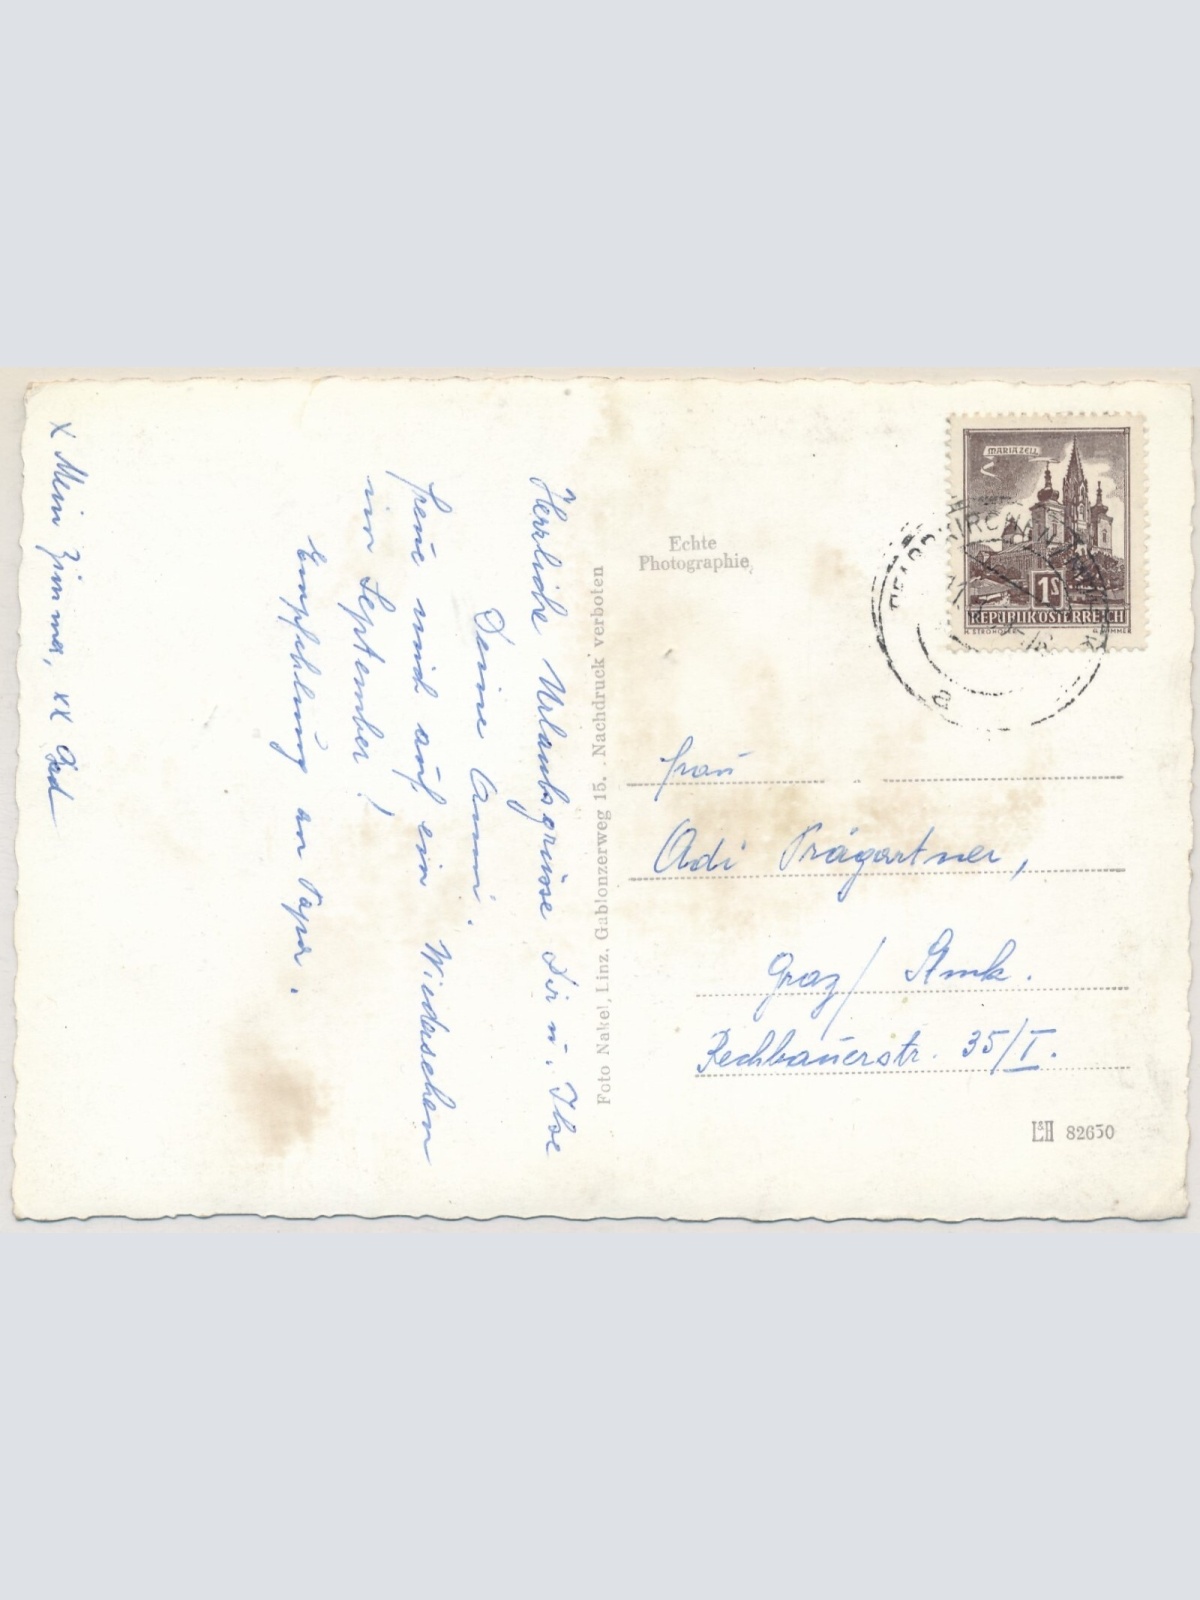 Herrliche Urlaubsgrüsse Dir u. Ilse
Deine Anni.
freue mich auf ein Wiedersehen
im September!
Empfehlung an Papa.
x Mein Zimmer, xx
Foto Nakel, Linz, Gablonzerweg 15. Nachdruck verboten
Echte
Photographie
MARIAZELL
1S
REPUBLIK ÖSTERREICH
a
Frau
Adi Trägartner,
Graz/ Stmk.
Rechbauerstr. 35/I.
L&H 82650